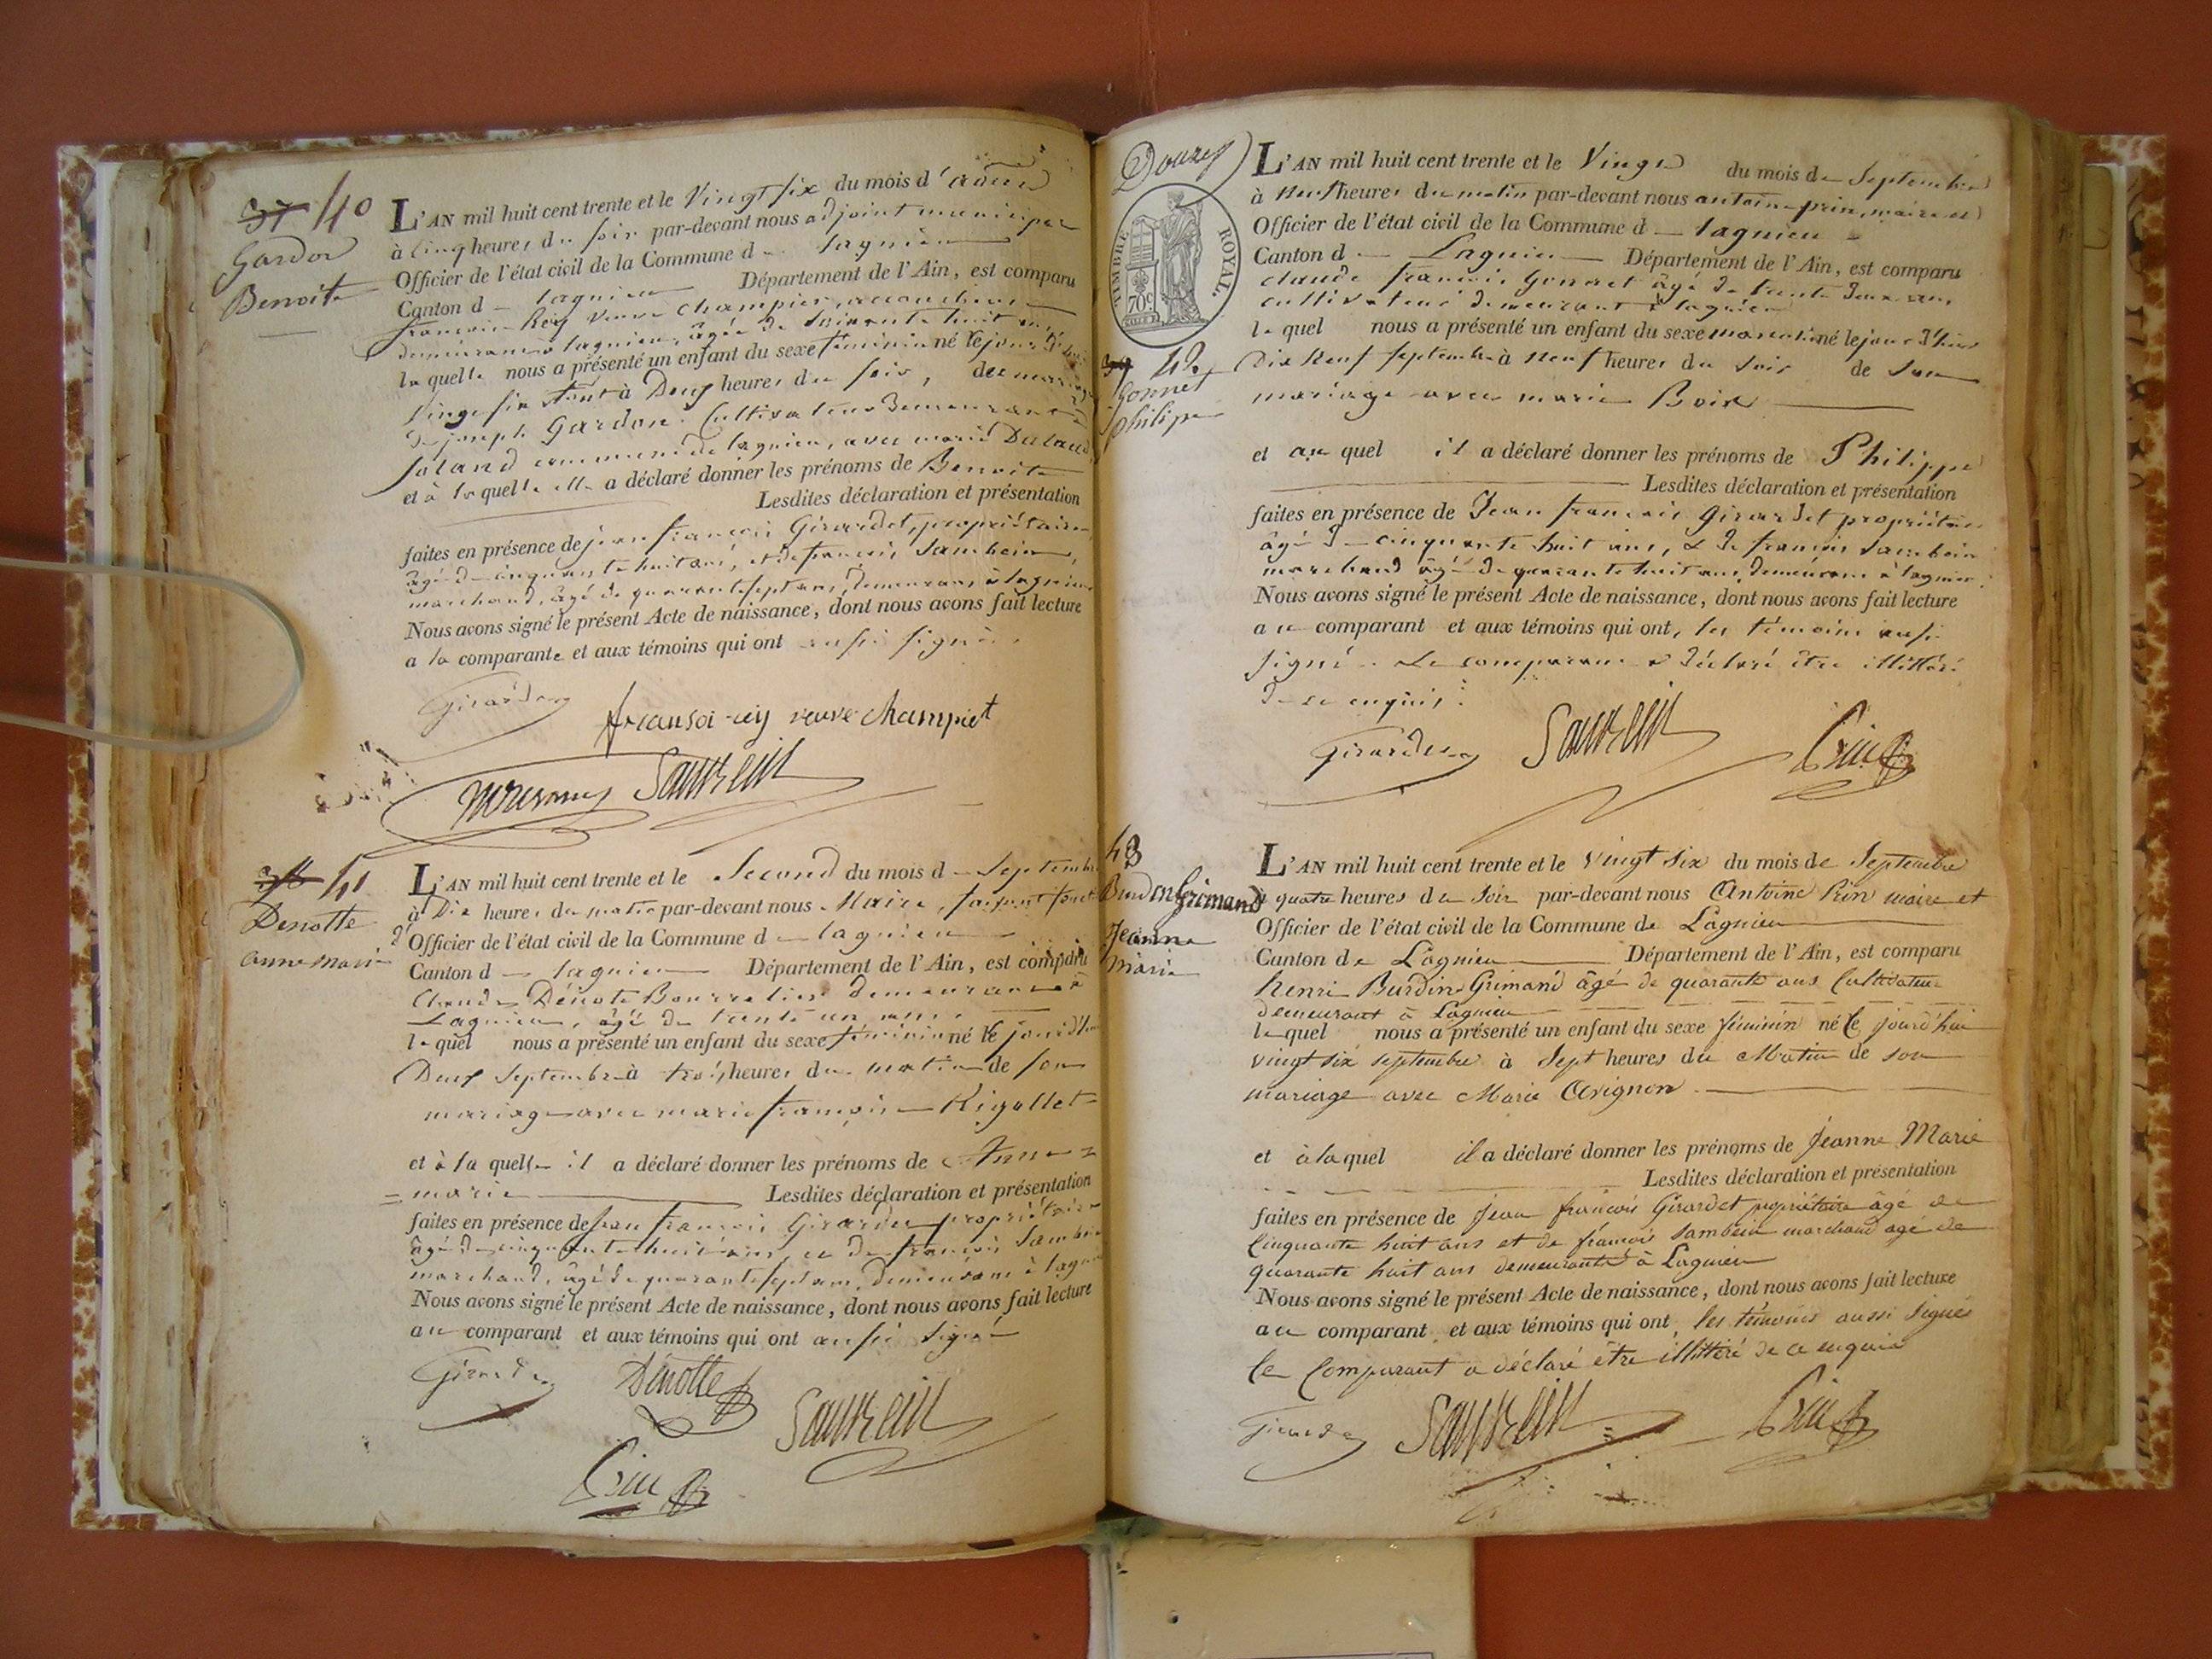 40
Gardon
Benoite
L'AN mil huit cent trente et le Vingt six du mois d'août
à Cinq heures du soir par-devant nous adjoint municipal
Officier de l'état civil de la Commune de Lagnieu
Canton de Lagnieu Département de l'Ain, est comparu
françoise Rey veuve Champier, accoucheuse
demeurant à lagnieu, âgée de soixante huit ans
laquelle nous a présenté un enfant du sexe féminin né le jour d'hui
Vingt six août à Deux heures du soir, du mariage
de joseph Gardon Cultivateur demeurant à
commune de lagnieu, avec marie
et à laquelle elle a déclaré donner les prénoms de Benoite
Lesdites déclaration et présentation
faites en présence de jean françois Girardet, propriétaire
âgé de cinquante huit ans, et de françois Sambein,
marchand, âgé de quarante sept ans, demeurans à lagnieu
Nous avons signé le présent Acte de naissance, dont nous avons fait lecture
a la comparante et aux témoins qui ont aussi signé.
Girardet
fransoi rey veuve champiet
Sambein
41
Denotte
anne Marie
L'AN mil huit cent trente et le Second du mois de Septembre
à Dix heures du matin par-devant nous Maire, faisant fonct
d'Officier de l'état civil de la Commune de lagnieu
Canton de lagnieu Département de l'Ain, est comparu
Claude Dénote Bourrelier demeurant à
Lagnieu, âgé de trente un ans
lequel nous a présenté un enfant du sexe féminin né le jourd'hui
Deux Septembre à trois heures du matin de son
mariage avec marie françoise Rigollet
et à laquelle il a déclaré donner les prénoms de Anne =
= marie Lesdites déclaration et présentation
faites en présence de Jean françois Girardet propriétaire
âgé de cinquante huit ans, et de françois Sambein
marchand, âgé de quarante sept ans, demeurans à lagnieu
Nous avons signé le présent Acte de naissance, dont nous avons fait lecture
au comparant et aux témoins qui ont aussi signé
Girardet Dénotte Sambein
Prin
Douze
TIMBRE ROYAL.
70c
42
Gonnet
philipe
L'AN mil huit cent trente et le Vingt du mois de Septembre
à neuf heures du matin par-devant nous antoine prin, maire et
Officier de l'état civil de la Commune de lagnieu
Canton de Lagnieu Département de l'Ain, est comparu
claude françois Gonnet âgé de trente deux ans
cultivateur demeurant à lagnieu
lequel nous a présenté un enfant du sexe masculin né le jour d'hier
Dix Neuf Septembre à neuf heures du soir de son
mariage avec marie Boix
et auquel il a déclaré donner les prénoms de Philippe
Lesdites déclaration et présentation
faites en présence de Jean françois Girardet propriétaire
âgé de cinquante huit ans, & de françois Sambein
marchand âgé de quarante huit ans, demeurans à lagnieu.
Nous avons signé le présent Acte de naissance, dont nous avons fait lecture
au comparant et aux témoins qui ont, les témoins aussi
signé. Le comparant a déclaré être illittéré
de ce enquis.
Girardet Sambein Prin
43
Burdin Grimand
Jeanne
Marie
L'AN mil huit cent trente et le vingt six du mois de Septembre
à quatre heures du Soir par-devant nous Antoine Prin maire et
Officier de l'état civil de la Commune de Lagnieu
Canton de Lagnieu Département de l'Ain, est comparu
henri Burdin Grimand âgé de quarante ans Cultivateur
demeurant à Lagnieu
lequel nous a présenté un enfant du sexe féminin né le jourd'hui
vingt six septembre à Sept heures du Matin de son
mariage avec Marie Avignon
et à laquel il a déclaré donner les prénoms de Jeanne Marie
Lesdites déclaration et présentation
faites en présence de Jean françois Girardet propriétaire âgé de
Cinquante huit ans et de françois Sambein marchand agé de
quarante huit ans demeurants à Lagnieu
Nous avons signé le présent Acte de naissance, dont nous avons fait lecture
au comparant et aux témoins qui ont les témoins aussi signés
le Comparant a déclaré être illittéré de ce enquis
Girardet Sambein Prin